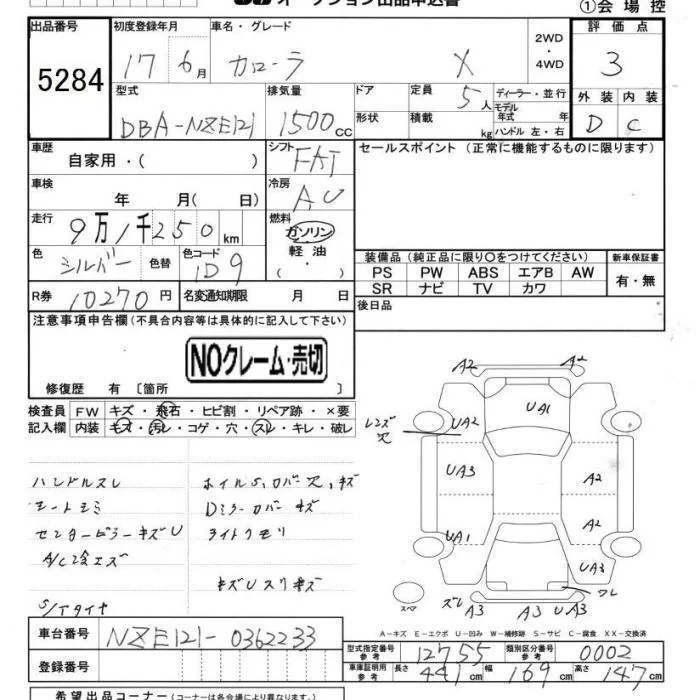 オークション出品申込書
①会場控
出品番号 初度登録年月 車名・グレード 評価点
5284 17 6月 カローラ X 2WD・4WD 3
型式 排気量 ドア 定員 ディーラー・並行 外装 内装
DBA-NZE121 1500cc 5人 モデル年式 年 D C
形状 積載 kg ハンドル 左・右
車歴 シフト セールスポイント (正常に機能するものに限ります)
自家用・( ) FAT
車検 冷房
年 月(日) A,C
走行 燃料
9万1千250km ガソリン
軽油
・( )
色 色替 色コード 装備品(純正品に限り○をつけてください) 新車保証書
シルバー 1D9 PS PW ABS エアB AW 有・無
SR ナビ TV カワ
R券 10270円 名変通知期限 月 日 後日品
注意事項申告欄(不具合内容等は具体的に記入して下さい)
NOクレーム・売切
修復歴 有 〔箇所 〕
検査員 FW キズ・飛石・ヒビ割・リペア跡・×要
記入欄 内装 キズ・汚レ・コゲ・穴・スレ・キレ・破レ
ハンドルスレ ホイルS,カバー欠,キズ
シートシミ Dミラーカバーキズ
センターピラーキズU ライトクモリ
A/C冷エズ
キズUスリキズ
S/Tタイヤ
A2 A2
UA1
レンズ欠 UA2
UA3 A2
A2
UA1 UA3
ワレ
スペア ズレ A3 A3 UA3
A-キズ E-エクボ U-凹み W-補修跡 S-サビ C-腐食 XX-交換済
車台番号 NZE121-0362233
型式指定番号 参考 12755 類別区分番号 参考 0002
登録番号 車庫証明用 参考 長さ 441cm 幅 169cm 高さ 147cm
希望出品コーナー(コーナーは各会場により異なります